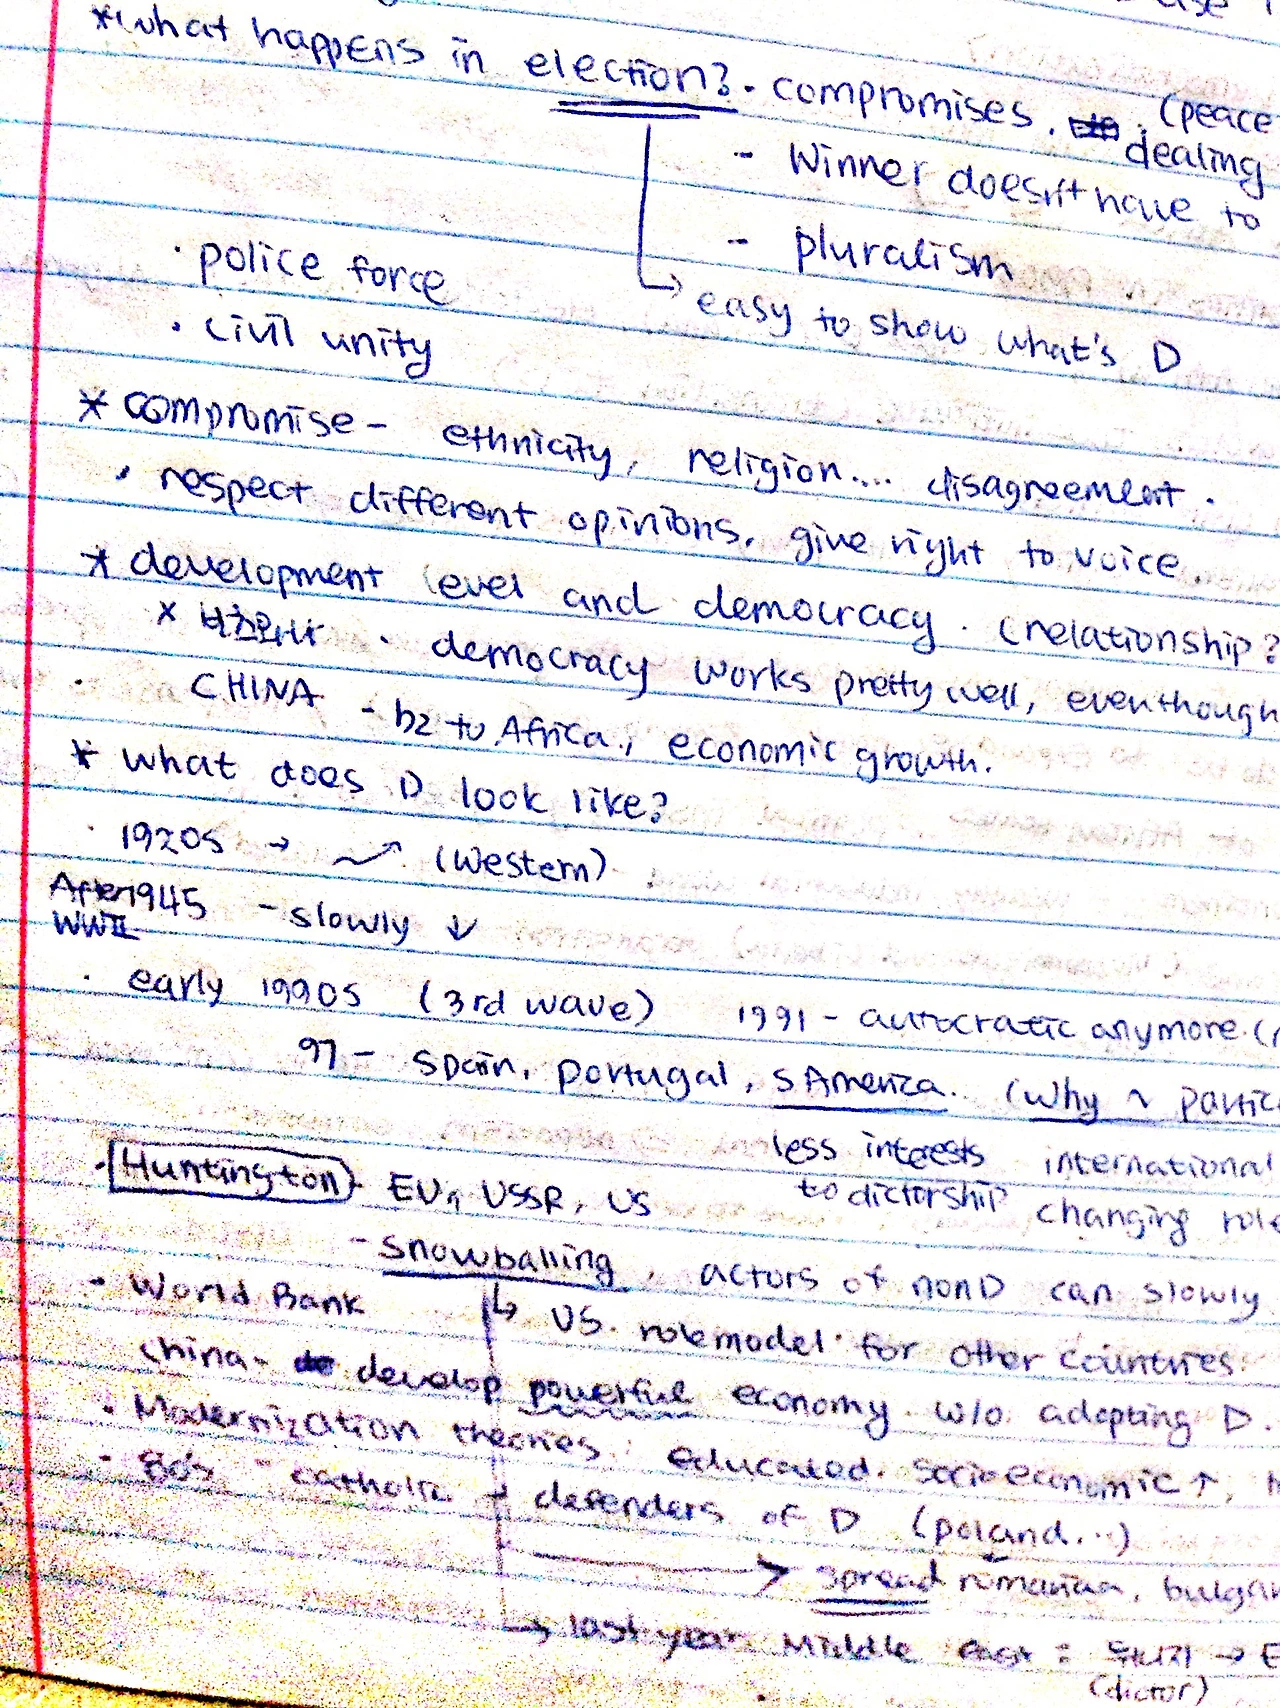 *what happens in election? . compromises. (peace
dealing
- Winner doesn't have to
- pluralism
easy to show what's D
. police force
. civil unity
* compromise - ethnicity, religion.... disagreement.
. respect different opinions, give right to voice.
* development level and democracy. (relationship?
x 보츠와나 . democracy works pretty well, eventhough
. CHINA - bz to Africa, economic growth.
* what does D look like?
. 1920s → (Western)
After 1945 - slowly ↓
WWII
. early 1990s (3rd wave) 1991 - autocratic anymore (
97 - Spain, Portugal, S America. (Why ~
less interests international
to dictorship changing role
. Huntington - EU, USSR, US
- snowballing, actors of nonD can slowly
- World Bank
US. rolemodel for other countries.
china - develop powerful economy w/o adopting D.
. Modernization theories: educated. socioeconomic ↑,
. 80s - catholic → defenders of D (poland...)
→ spread romanian,
→ last year Middle East : → E
(dictor)